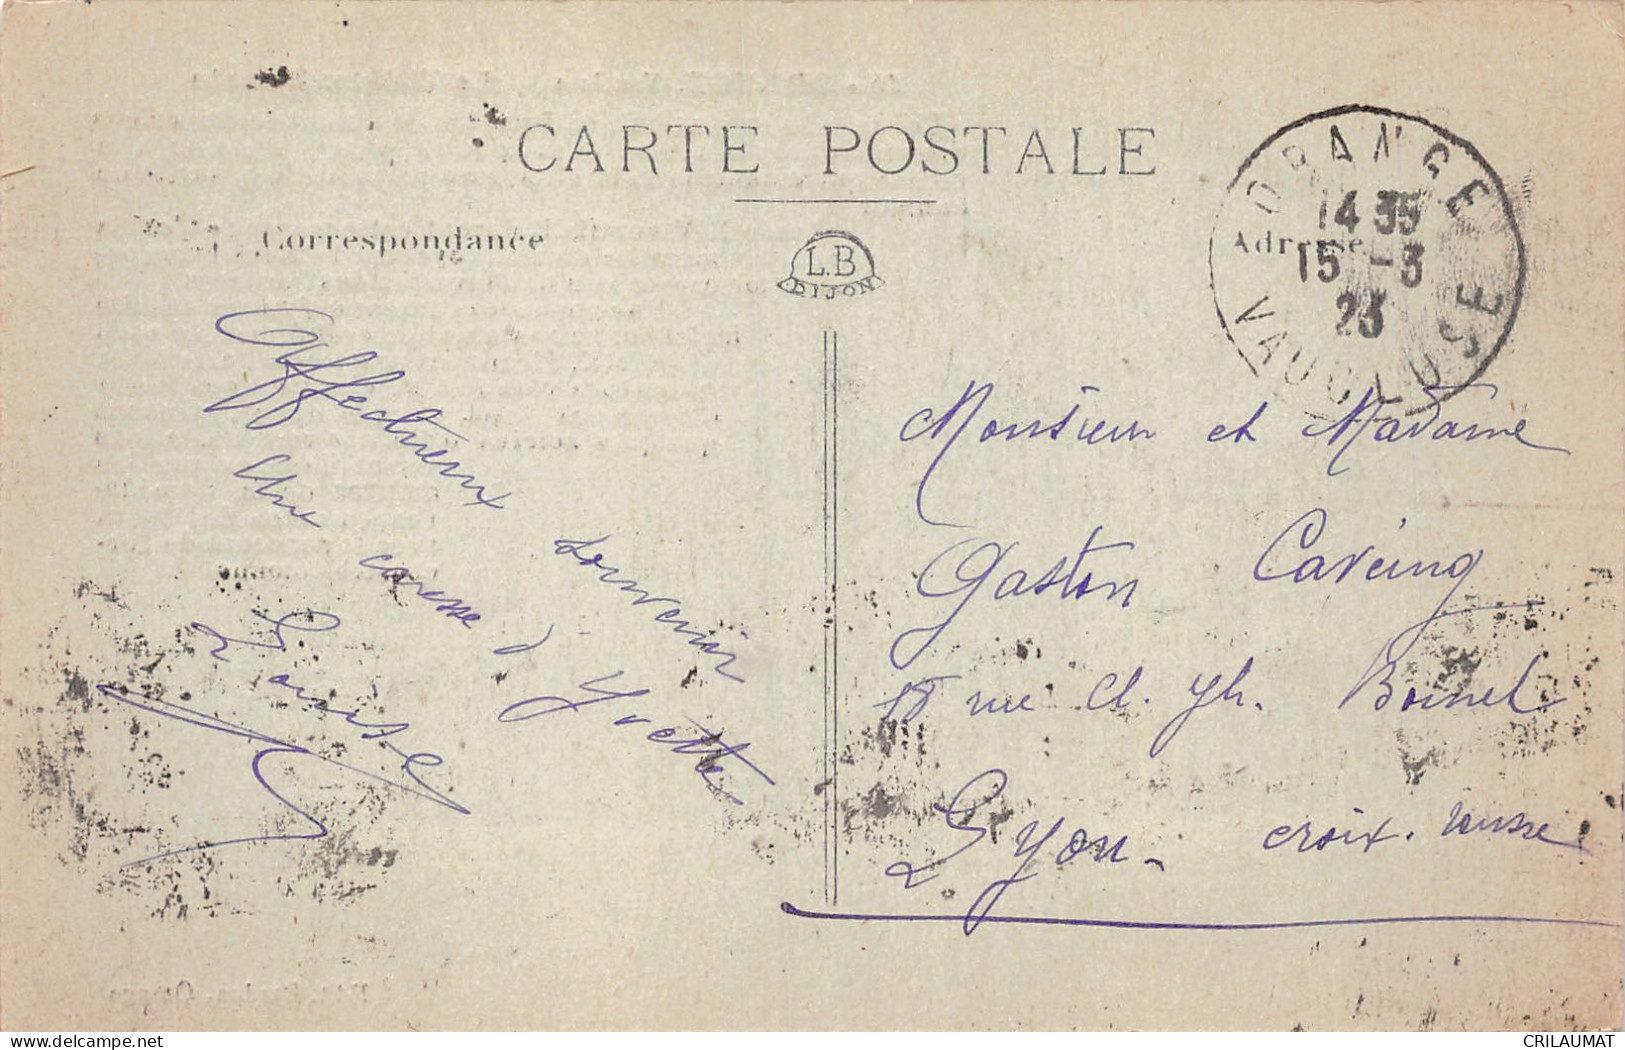 CARTE POSTALE
Correspondance
L.B
DIJON
Adresse
ORANGE
14 35
15 -3
23
VAUCLUSE
Affectueux souvenir
Une caresse d'Yvette
Louise
Monsieur et Madame
Gaston Caveing
18 rue Ch. Ph.
Lyon - croix. rousse
www.delcampe.net
CRILAUMAT